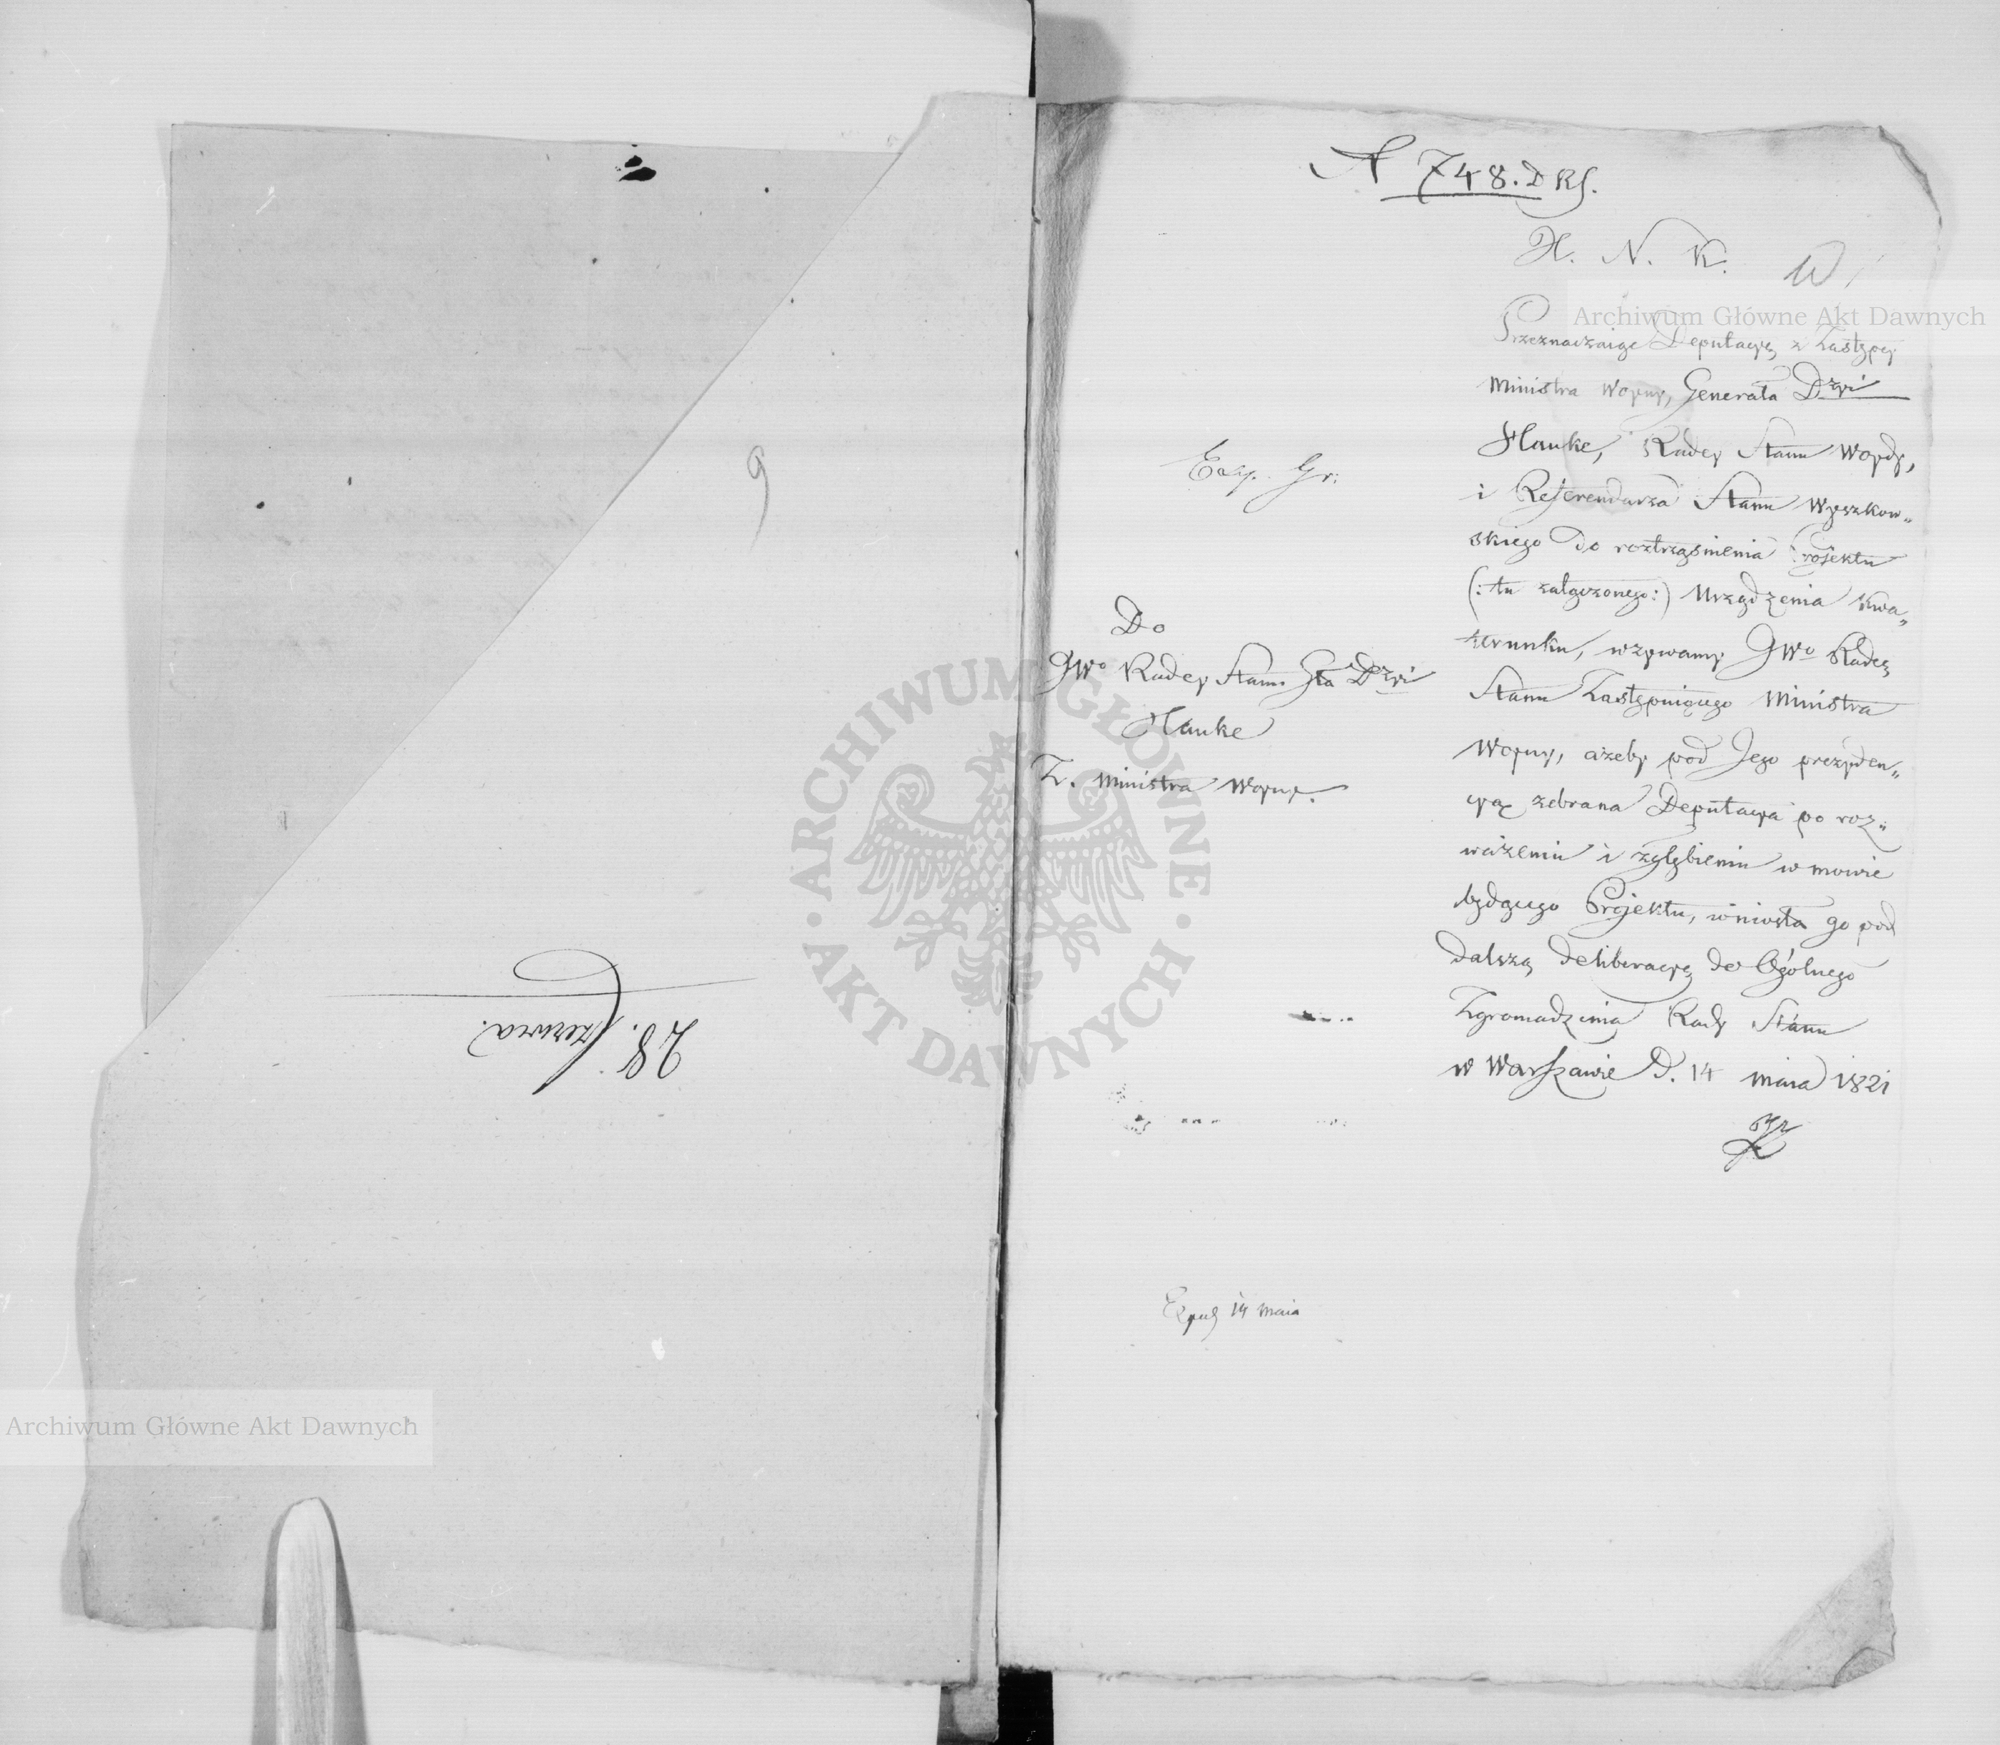 9
28. Czerwca.
N 748. D RS.
X. N. K.
10
Przeznaczaiąc Deputacyą z Zastępcy
Ministra Woyny, Generała Dzyi
Hauke, Radcy Stanu Woydy,
i Referendarza Stanu Wyszkow„
skiego do roztrząśnienia Projektu
(: tu załączonego :) Urządzenia Kwa„
terunku, wzywamy JWo Radcę
Stanu Zastępuiącego Ministra
Woyny, ażeby pod Jego prezyden„
cyą zebrana Deputacya po roz„
ważeniu i zgłębieniu w mowie
będącego Projektu, wniosła go pod
dalszą deliberacyą do Ogólnego
Zgromadzenia Rady Stanu
w Warszawie D. 14 maia 1821
Exp. Gr:
Do
JWo Radcy Stanu Gła Dzyi
Hauke
Z. Ministra Woyny.
Exped 14 maia
Archiwum Główne Akt Dawnych
Archiwum Główne Akt Dawnych
ARCHIWUM GŁÓWNE · AKT DAWNYCH ·